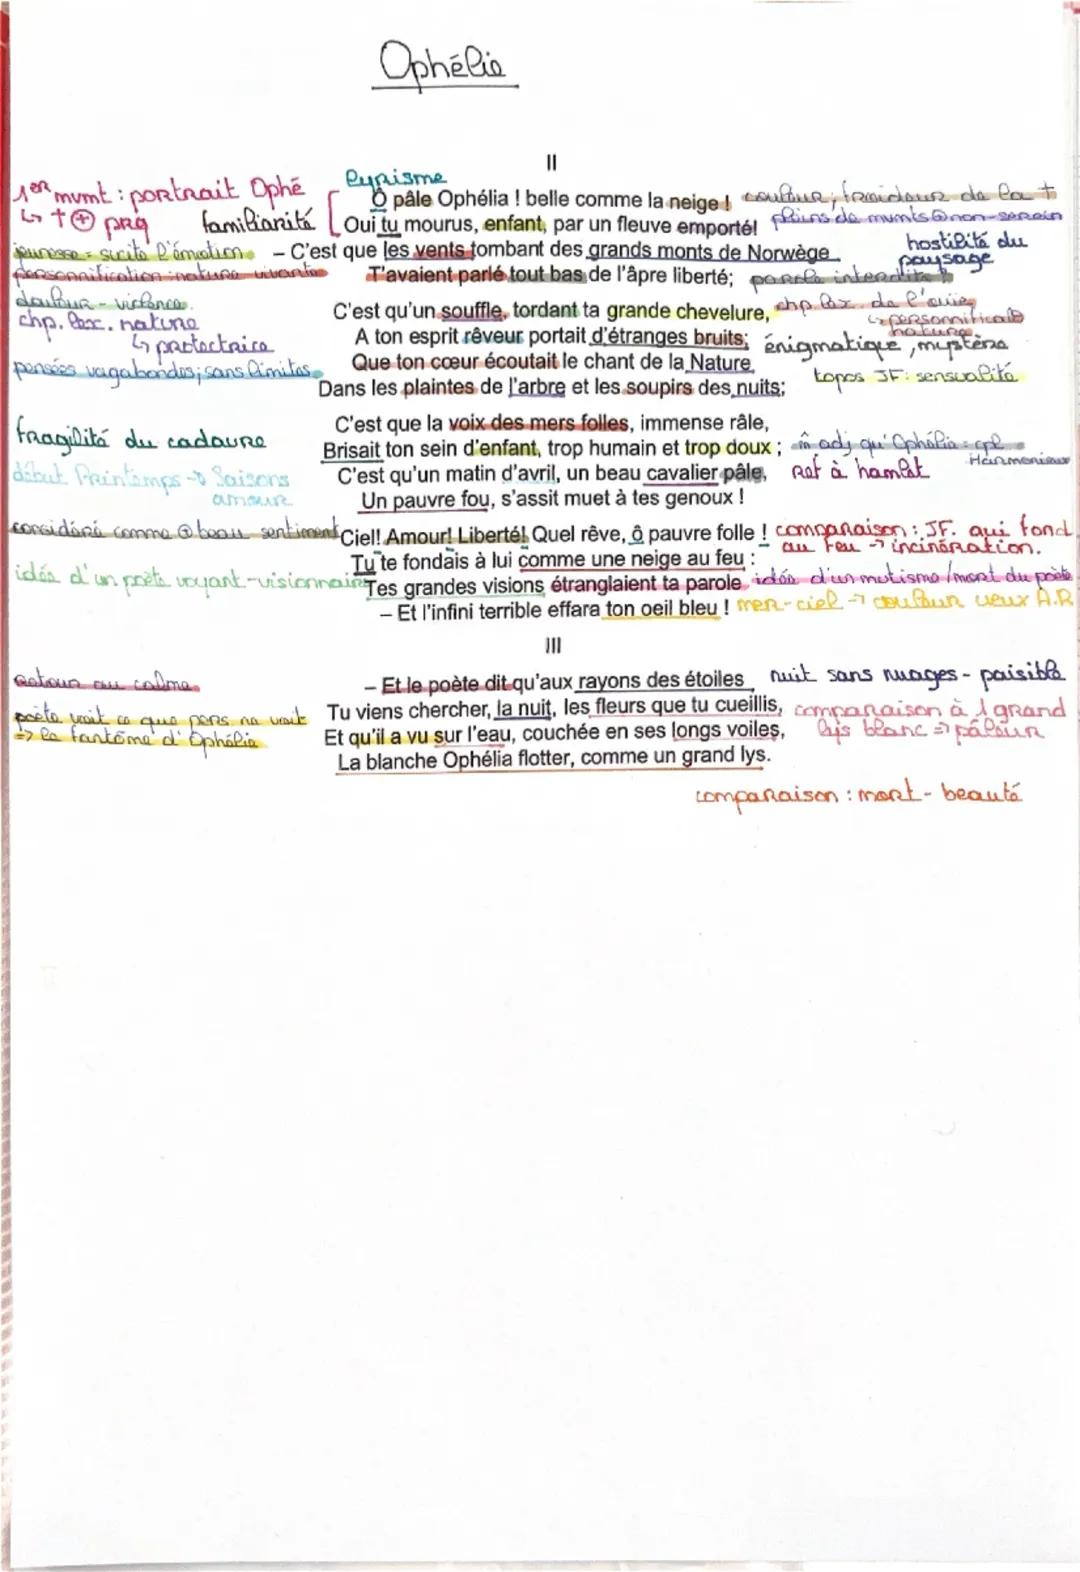 Ophélie
II
1er mvmt : portrait Ophé
lyrisme
Ô pâle Ophélia ! belle comme la neige ! couleur ; froideur de la †
↳ † ⊕ prq familiarité Oui tu mourus, enfant, par un fleuve emporté! pleins de mvmts non-serein
jeunesse = sucite l'émotion – C'est que les vents tombant des grands monts de Norwège hostilité du paysage
personnification nature vivante T'avaient parlé tout bas de l'âpre liberté; parole interdite
douleur - violence. C'est qu'un souffle, tordant ta grande chevelure, chp lex. de l'ouïe
chp. lex. nature A ton esprit rêveur portait d'étranges bruits; énigmatique, mystère
↳ personnificat° nature.
↳ protectrice Que ton cœur écoutait le chant de la Nature
pensées vagabondes; sans limites Dans les plaintes de l'arbre et les soupirs des nuits; topos JF: sensualité
C'est que la voix des mers folles, immense râle,
fragilité du cadavre Brisait ton sein d'enfant, trop humain et trop doux ; m̂ adj qu'Ophélia : cpl Harmonieux
début Printemps → Saisons amour C'est qu'un matin d'avril, un beau cavalier pâle, Ref à hamlet
Un pauvre fou, s'assit muet à tes genoux !
considéré comme beau sentiment Ciel! Amour! Liberté! Quel rêve, ô pauvre folle ! comparaison : JF. qui fond
Tu te fondais à lui comme une neige au feu : au feu → incinération.
idée d'un poète voyant-visionnaire Tes grandes visions étranglaient ta parole idée d'un mutisme/mort du poète
– Et l'infini terrible effara ton oeil bleu ! mer-ciel → couleur yeux A.R
III
Retour au calme – Et le poète dit qu'aux rayons des étoiles nuit sans nuages - paisible
poète voit ce que pers ne voit Tu viens chercher, la nuit, les fleurs que tu cueillis, comparaison à 1 grand
=> le fantôme d'Ophélie Et qu'il a vu sur l'eau, couchée en ses longs voiles, lys blanc => pâleur
La blanche Ophélia flotter, comme un grand lys.
comparaison : mort - beauté